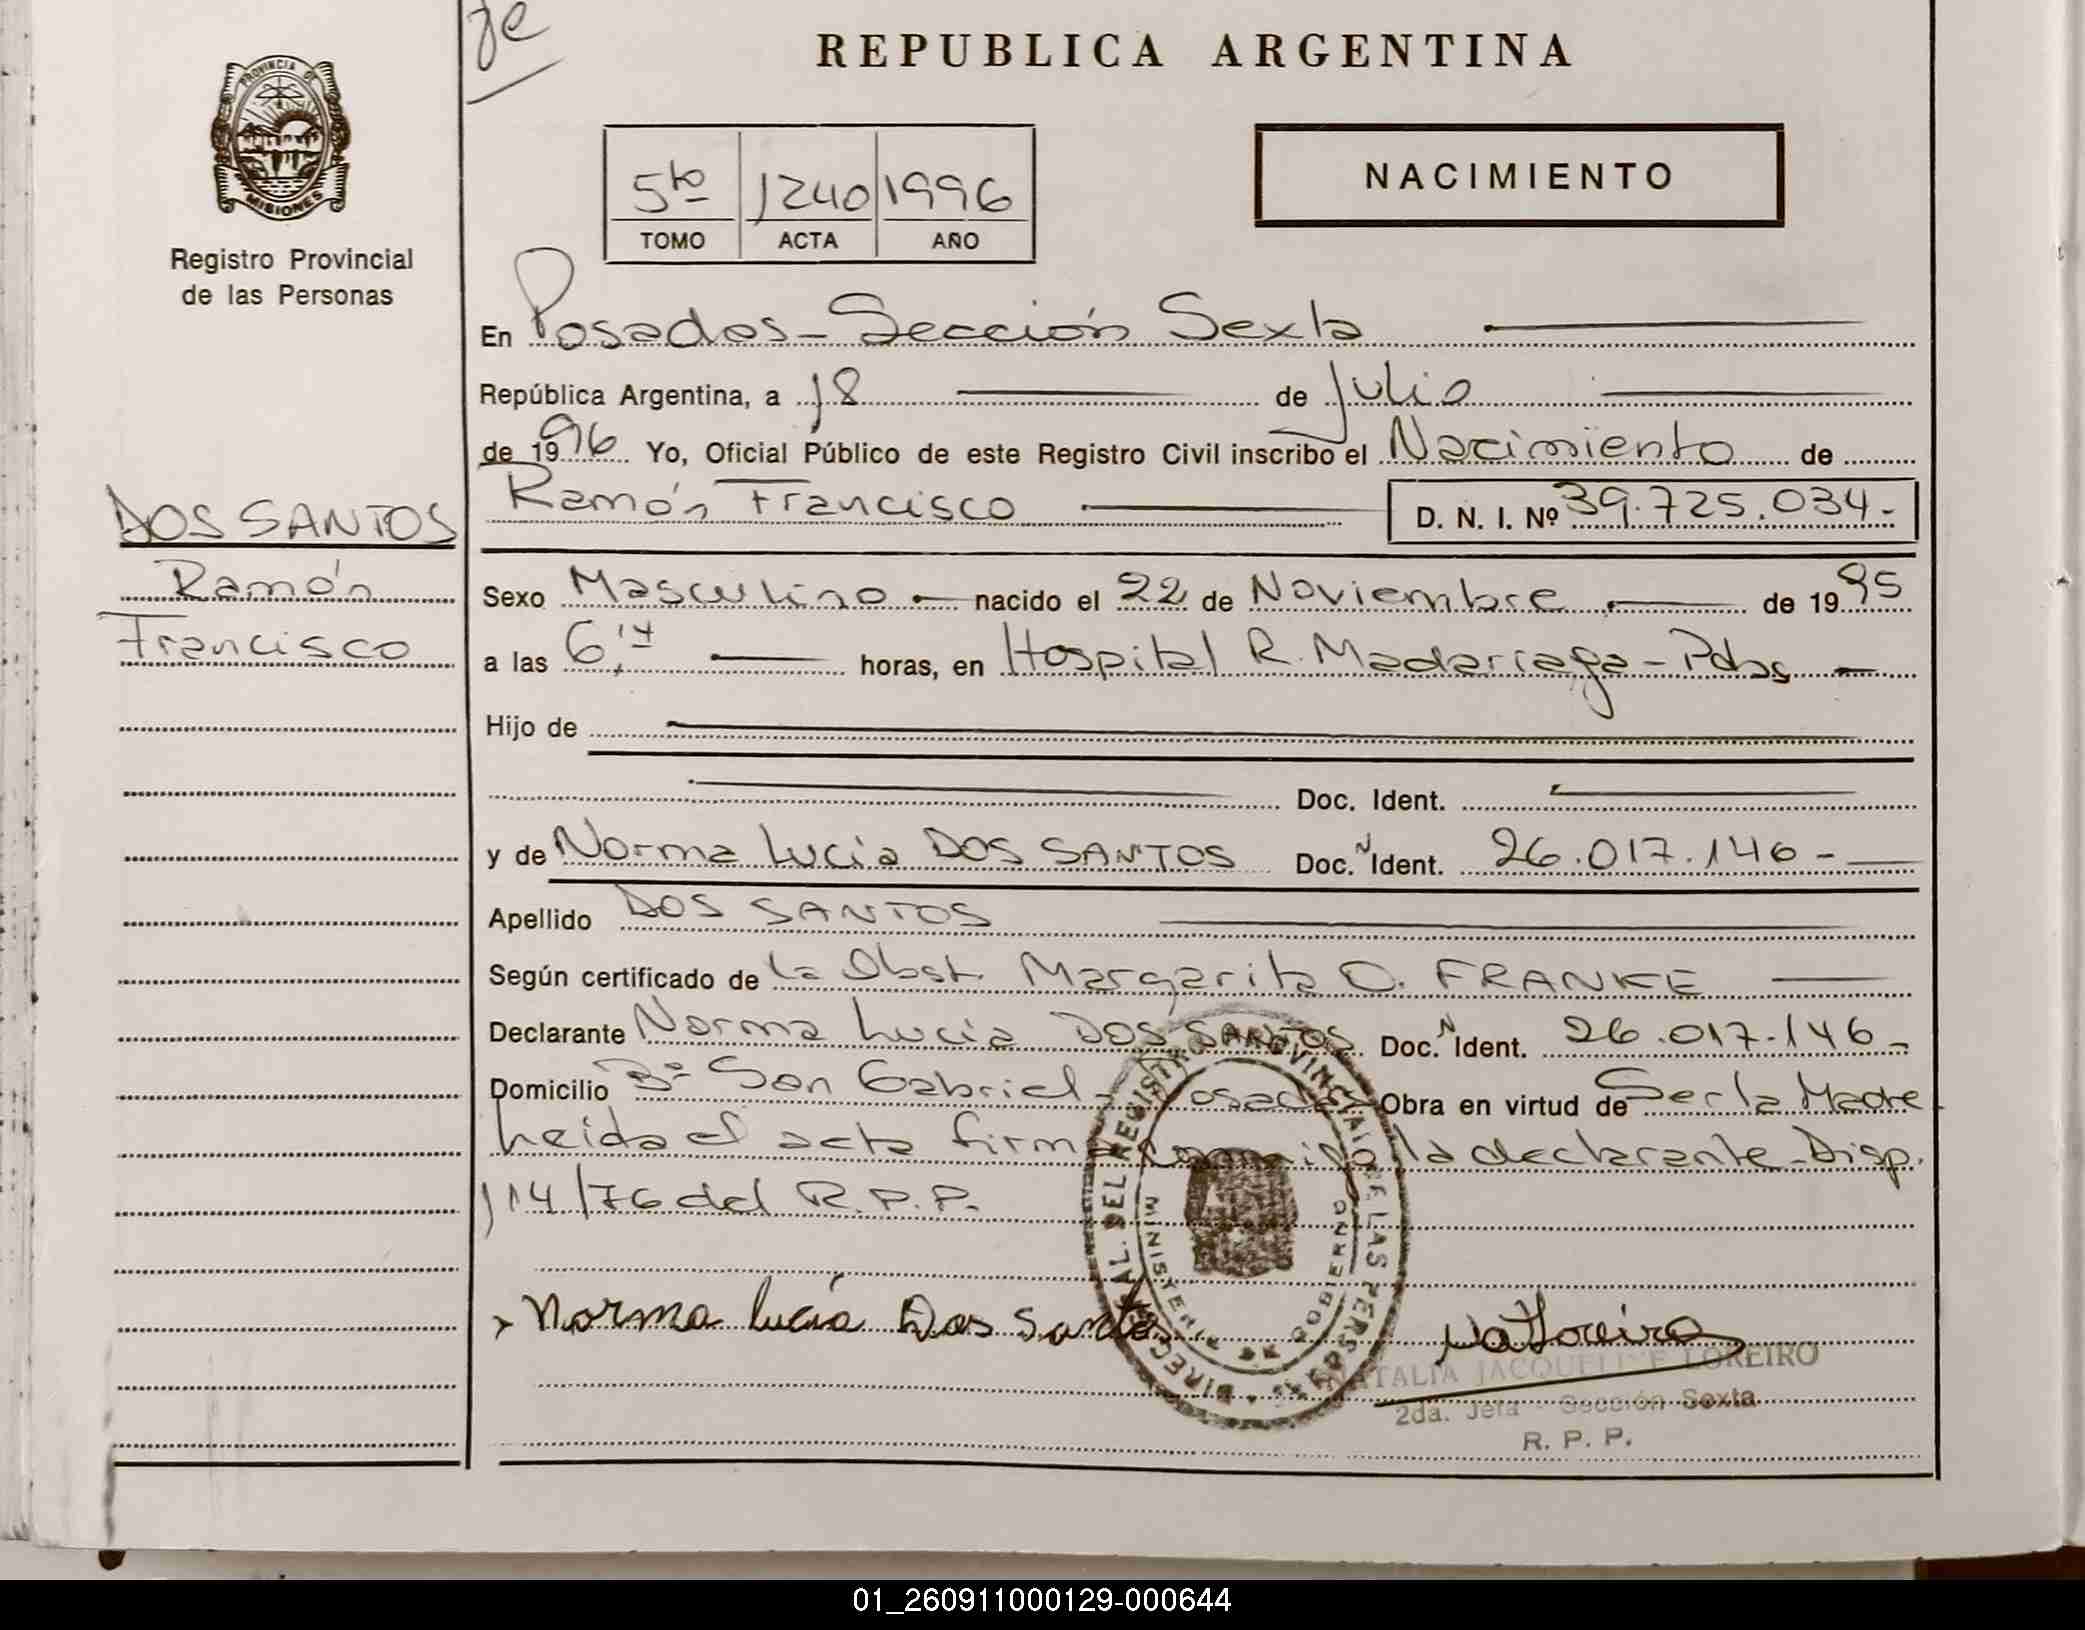 REPUBLICA ARGENTINA
PROVINCIA DE
MISIONES
Registro Provincial
de las Personas
5to 1240 1996
TOMO ACTA AÑO
NACIMIENTO
En Posadas - Sección Sexta
República Argentina, a 18 de Julio
de 1996 Yo, Oficial Público de este Registro Civil inscribo el Nacimiento de
Ramón Francisco D. N. I. Nº 39.725.034.-
DOS SANTOS
Ramón
Francisco
Sexo Masculino nacido el 22 de Noviembre de 1995
a las 6,14 horas, en Hospital R. Madariaga - Pdas
Hijo de
Doc. Ident.
y de Norma Lucía DOS SANTOS Doc. N Ident. 26.017.146 -
Apellido DOS SANTOS
Según certificado de la Obst. Margarita O. FRANKE
Declarante Norma Lucía DOS SANTOS Doc. N Ident. 26.017.146 -
Domicilio Bº San Gabriel - Posadas Obra en virtud de Ser la Madre
Leida el acta firma conmigo la declarante - Disp.
114/76 del R.P.P.
Norma Lucía Dos Santos
Na Loreiro
NATALIA JACQUELINE LOREIRO
2da. Jefa - Sección Sexta
R. P. P.
DIREC GRAL. DEL REGISTRO PROVINCIAL DE LAS PERSONAS
MINISTERIO DE GOBIERNO
01_260911000129-000644